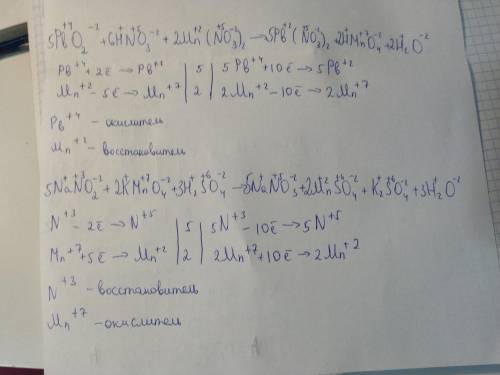 5Pb⁺⁴O₂⁻² + 6H⁺N⁺⁵O₃⁻² + 2Mn⁺²(N⁺⁵O₃⁻²)₂ → 5Pb⁺²(N⁺⁵O₃⁻²)₂ + 2H⁺Mn⁺⁷O₄⁻² + 2H₂⁺O⁻²
Pb⁺⁴ + 2ē → Pb⁺² | 5 | 5Pb⁺⁴ + 10ē → 5Pb⁺²
Mn⁺² - 5ē → Mn⁺⁷ | 2 | 2Mn⁺² - 10ē → 2Mn⁺⁷
Pb⁺⁴ - окислитель
Mn⁺² - восстановитель
5Na⁺N⁺³O₂⁻² + 2K⁺Mn⁺⁷O₄⁻² + 3H₂⁺S⁺⁶O₄⁻² → 5Na⁺N⁺⁵O₃⁻² + 2Mn⁺²S⁺⁶O₄⁻² + K₂⁺S⁺⁶O₄⁻² + 3H₂⁺O⁻²
N⁺³ - 2ē → N⁺⁵ | 5 | 5N⁺³ - 10ē → 5N⁺⁵
Mn⁺⁷ + 5ē → Mn⁺² | 2 | 2Mn⁺⁷ + 10ē → 2Mn⁺²
N⁺³ - восстановитель
Mn⁺⁷ - окислитель